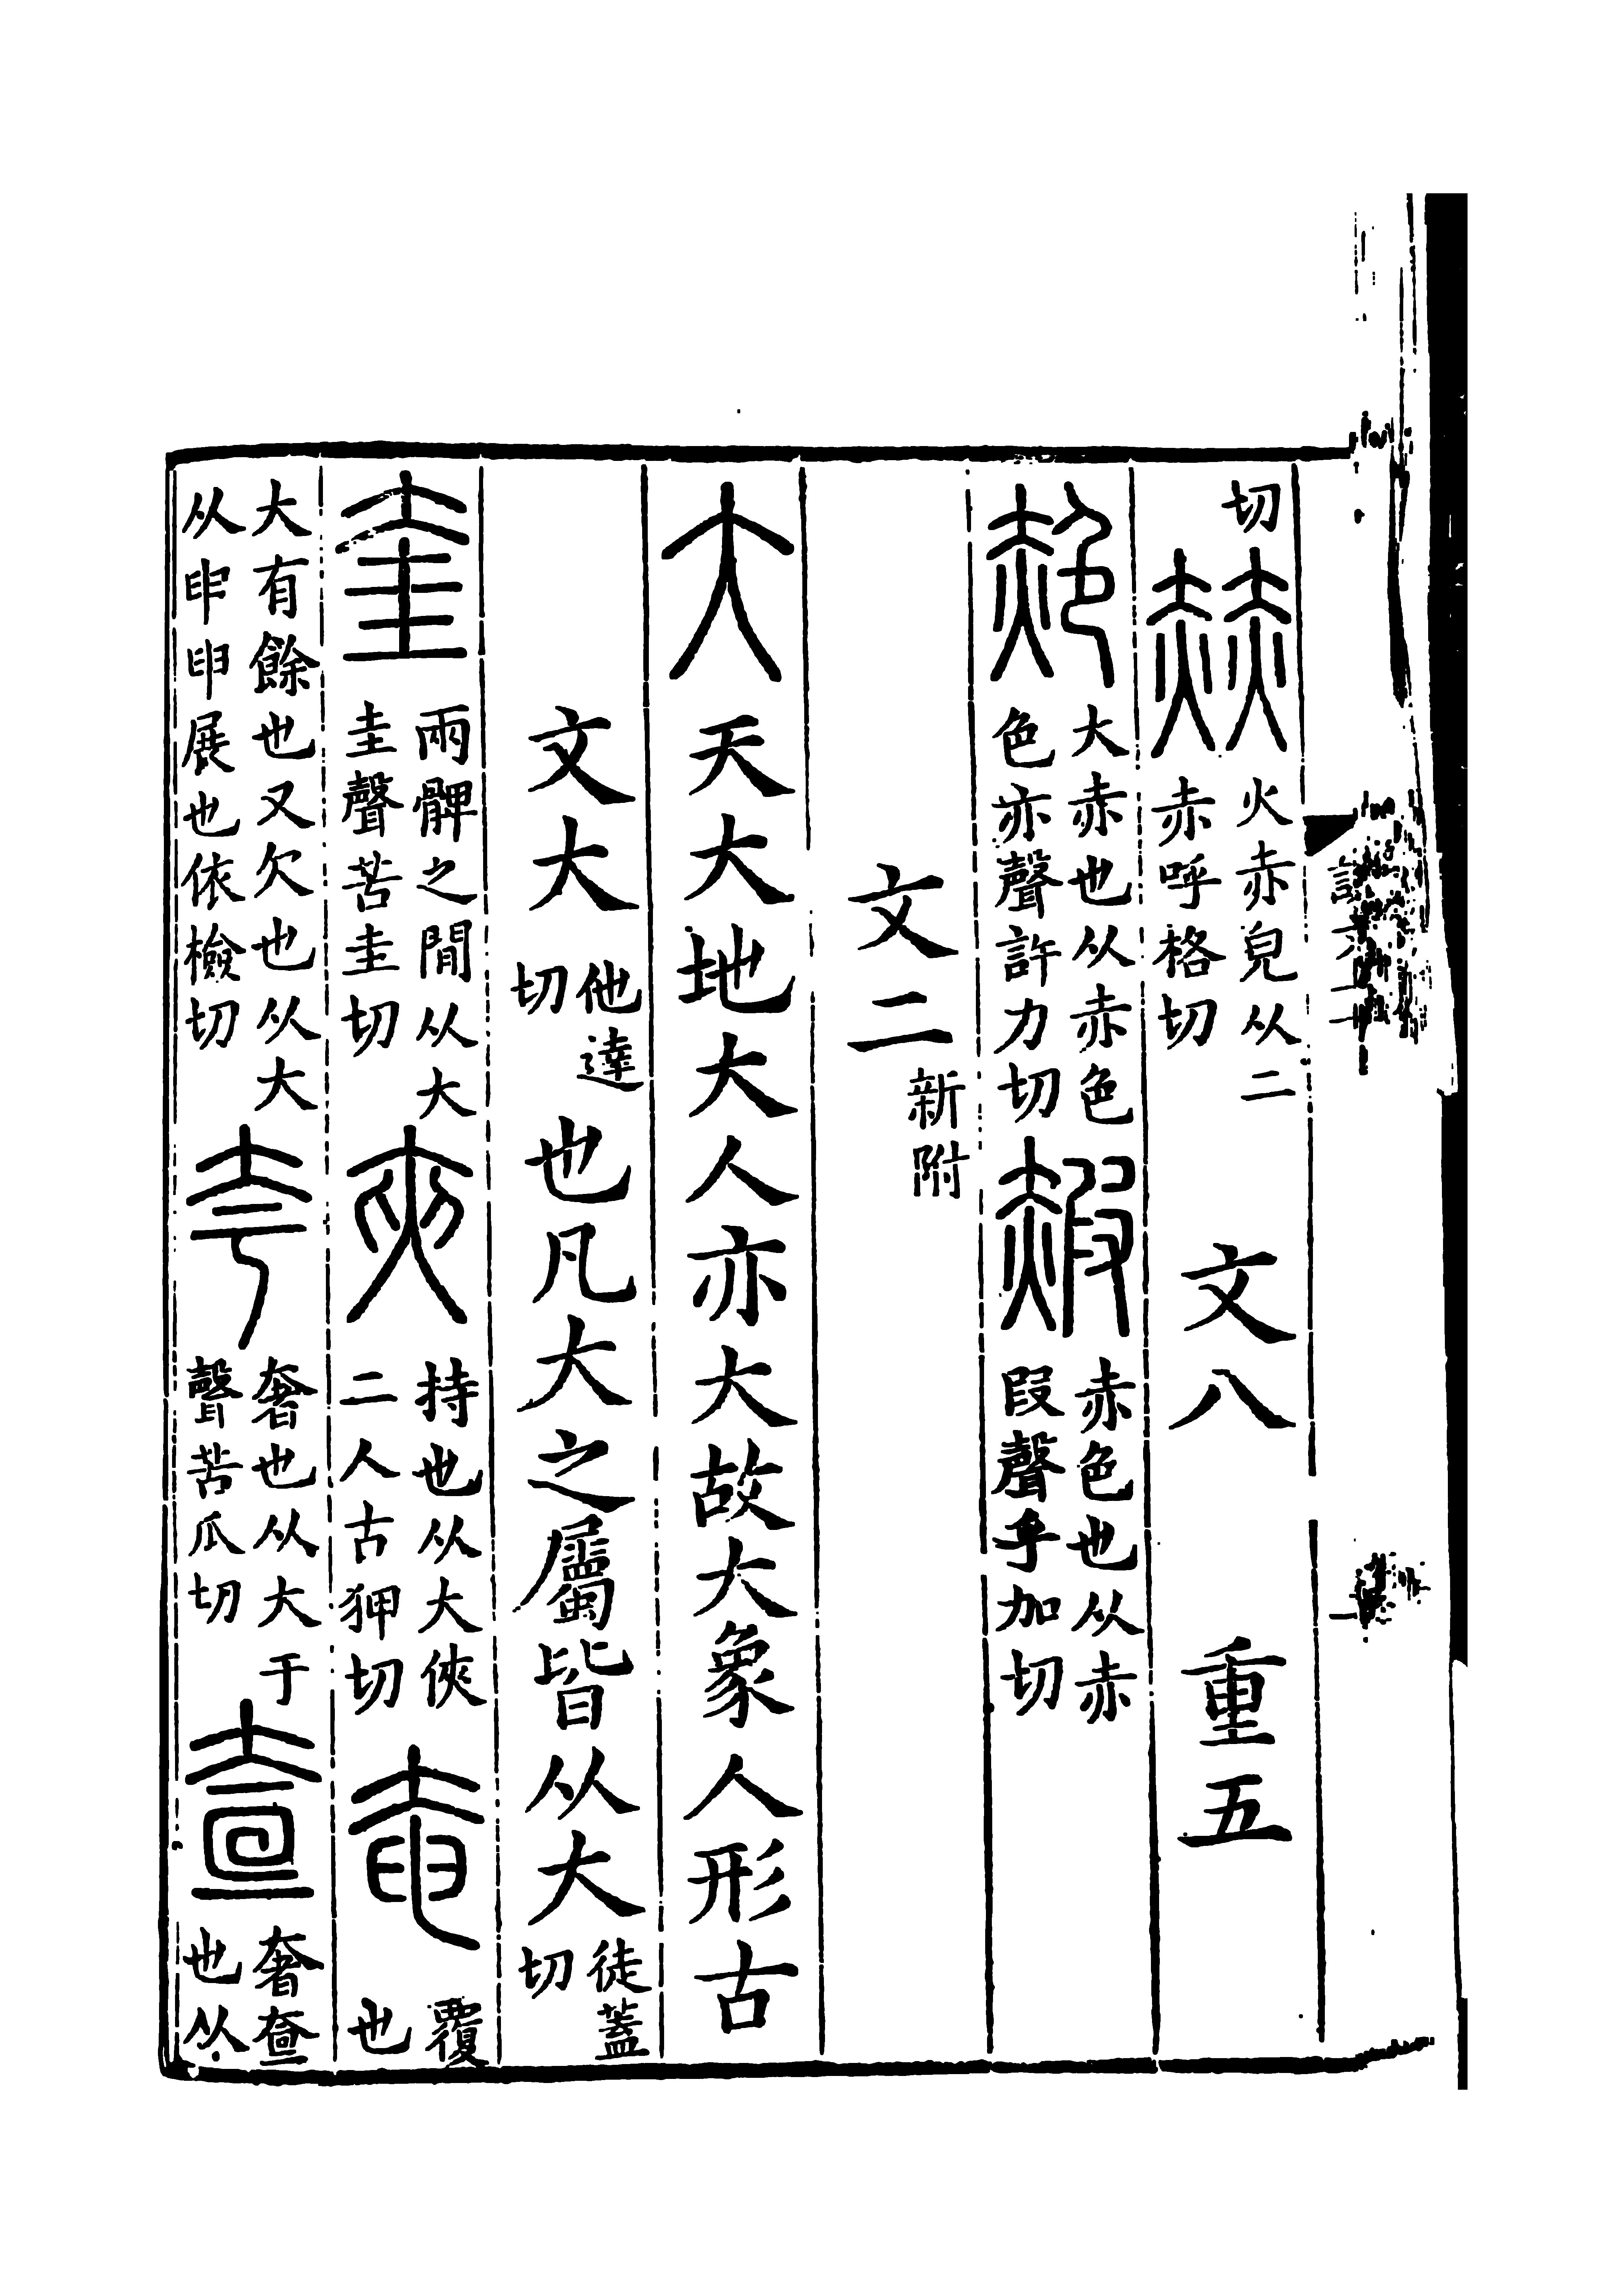 切 赫 火赤皃从二赤呼格切 文八 重五
赩 大赤也从赤色色亦聲許力切 赮 赤色也从赤叚聲乎加切
文二 新附
大 天大地大人亦大故大象人形古
文大 他達切 也凡大之屬皆从大 徒蓋切
奎 兩髀之閒从大圭聲苦圭切 夾 持也从大俠二人古狎切 奄 覆也
大有餘也又欠也从大从申申展也依檢切 夸 奢也从大于聲苦瓜切 査 奢査也从